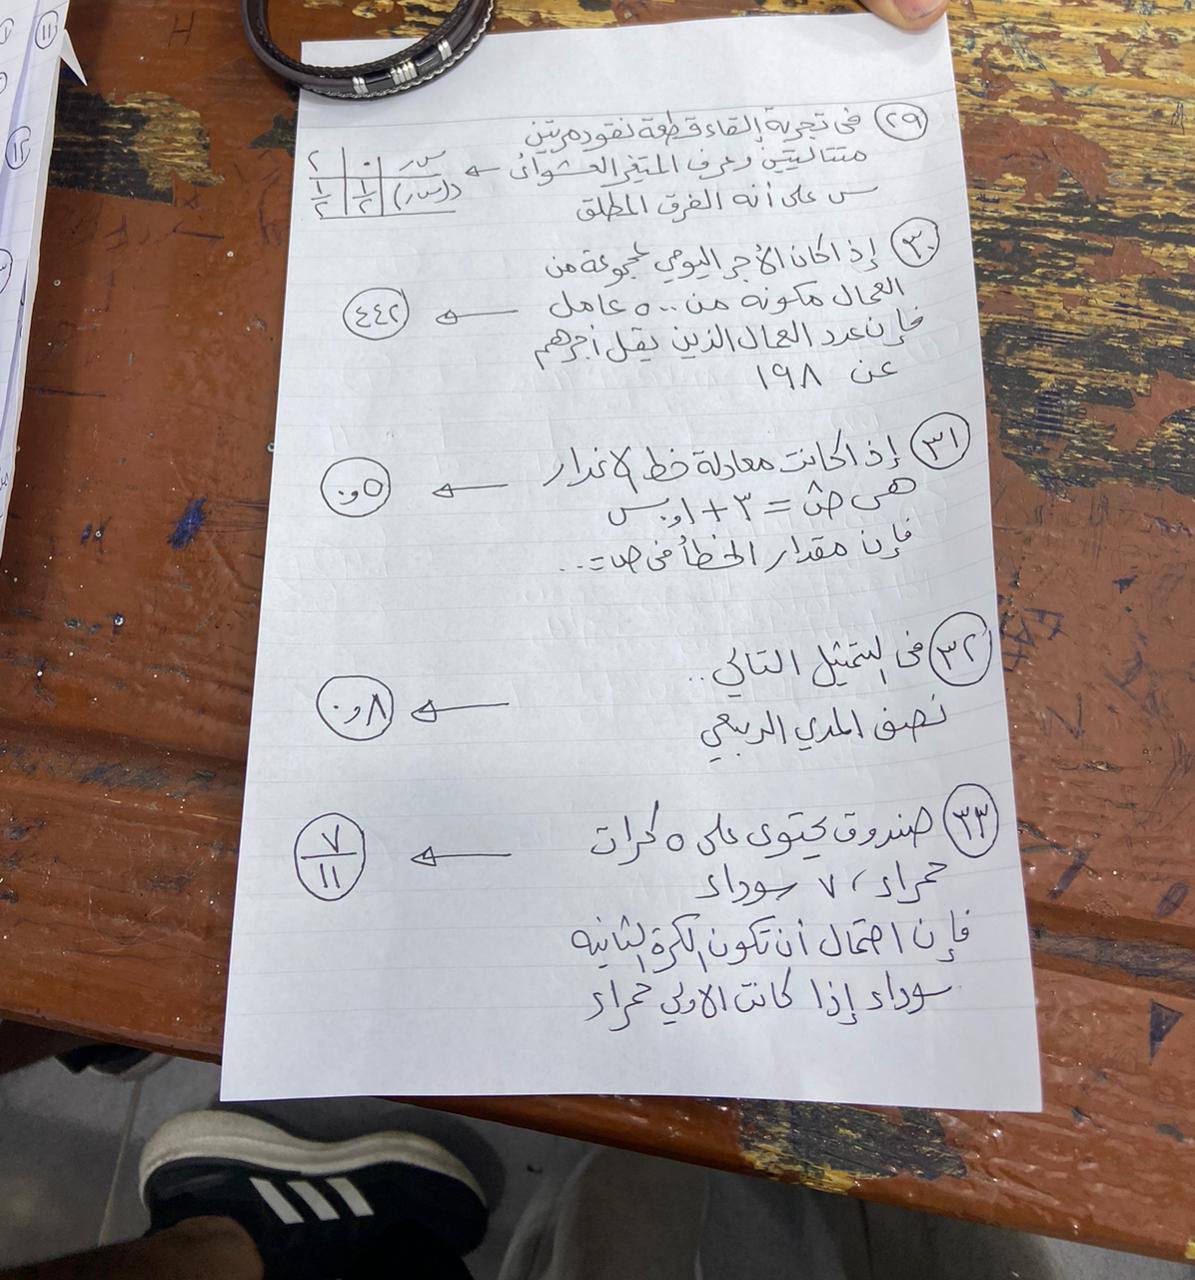 ٢٩ فى تجربة إلقاء قطعة نقود مرتين
متتاليتين وعرف المتغير العشوائى
س على أنه الفرق المطلق
سر ٠ ٢
د(سر) ١/٢ ١/٢
٣٠ إذا كان الأجر اليومي لمجموعة من
العمال مكونه من ٥٠٠ عامل
فإن عدد العمال الذين يقل أجرهم
عن ١٩٨
٤٤٢
٣١ إذا كانت معادلة خط الانحدار
هى صَ = ٣ + ٠,١ س
فإن مقدار الخطأ فى ص = ..
٠,٥
٣٢ فى التمثيل التالي ..
نصف المدي الربيعي
٠,٨
٣٣ صندوق يحتوى على ٥ كرات
حمراء، ٧ سوداء
فإن احتمال أن تكون الكرة الثانيه
سوداء إذا كانت الاولي حمراء
٧/١١
١١
١٢